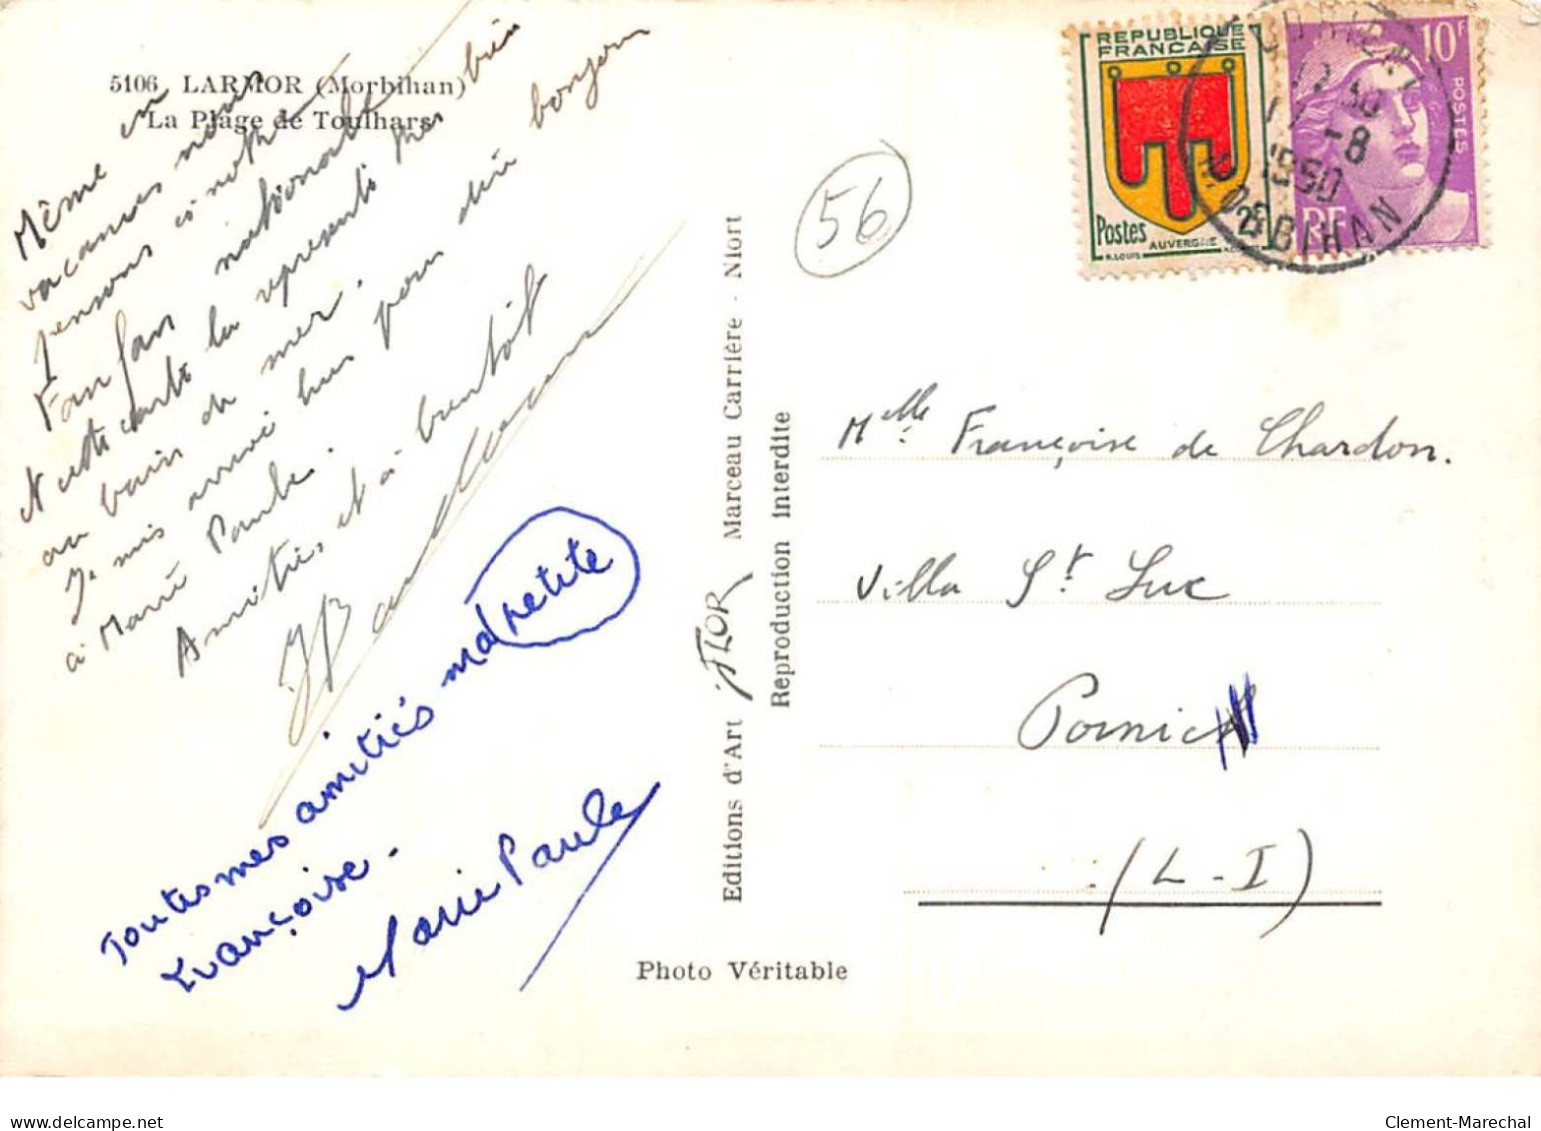 5106 LARMOR (Morbihan)
La Plage de Toulhars
Même en
vacances nous
pensons à notre
Fanfan nationale
Et cette carte la représente très bien
au bain de mer.
Je suis arrivé hier pour dire bonjour
à Marie Paule.
Amitiés, et à bientôt
Toutes mes amitiés ma petite
Françoise -
Marie Paule
Editions d'Art JFLOR Marceau Carrière - Niort
Reproduction interdite
Photo Véritable
56
REPUBLIQUE
FRANCAISE
Postes
2F
AUVERGNE
R. LOUIS
10F
POSTES
RF
LORIENT
17 30
-8
1950
MORBIHAN
Melle Françoise de Chardon.
Villa St Luc
Pornic
(L-I)
Clement-Marechal
delcampe.net